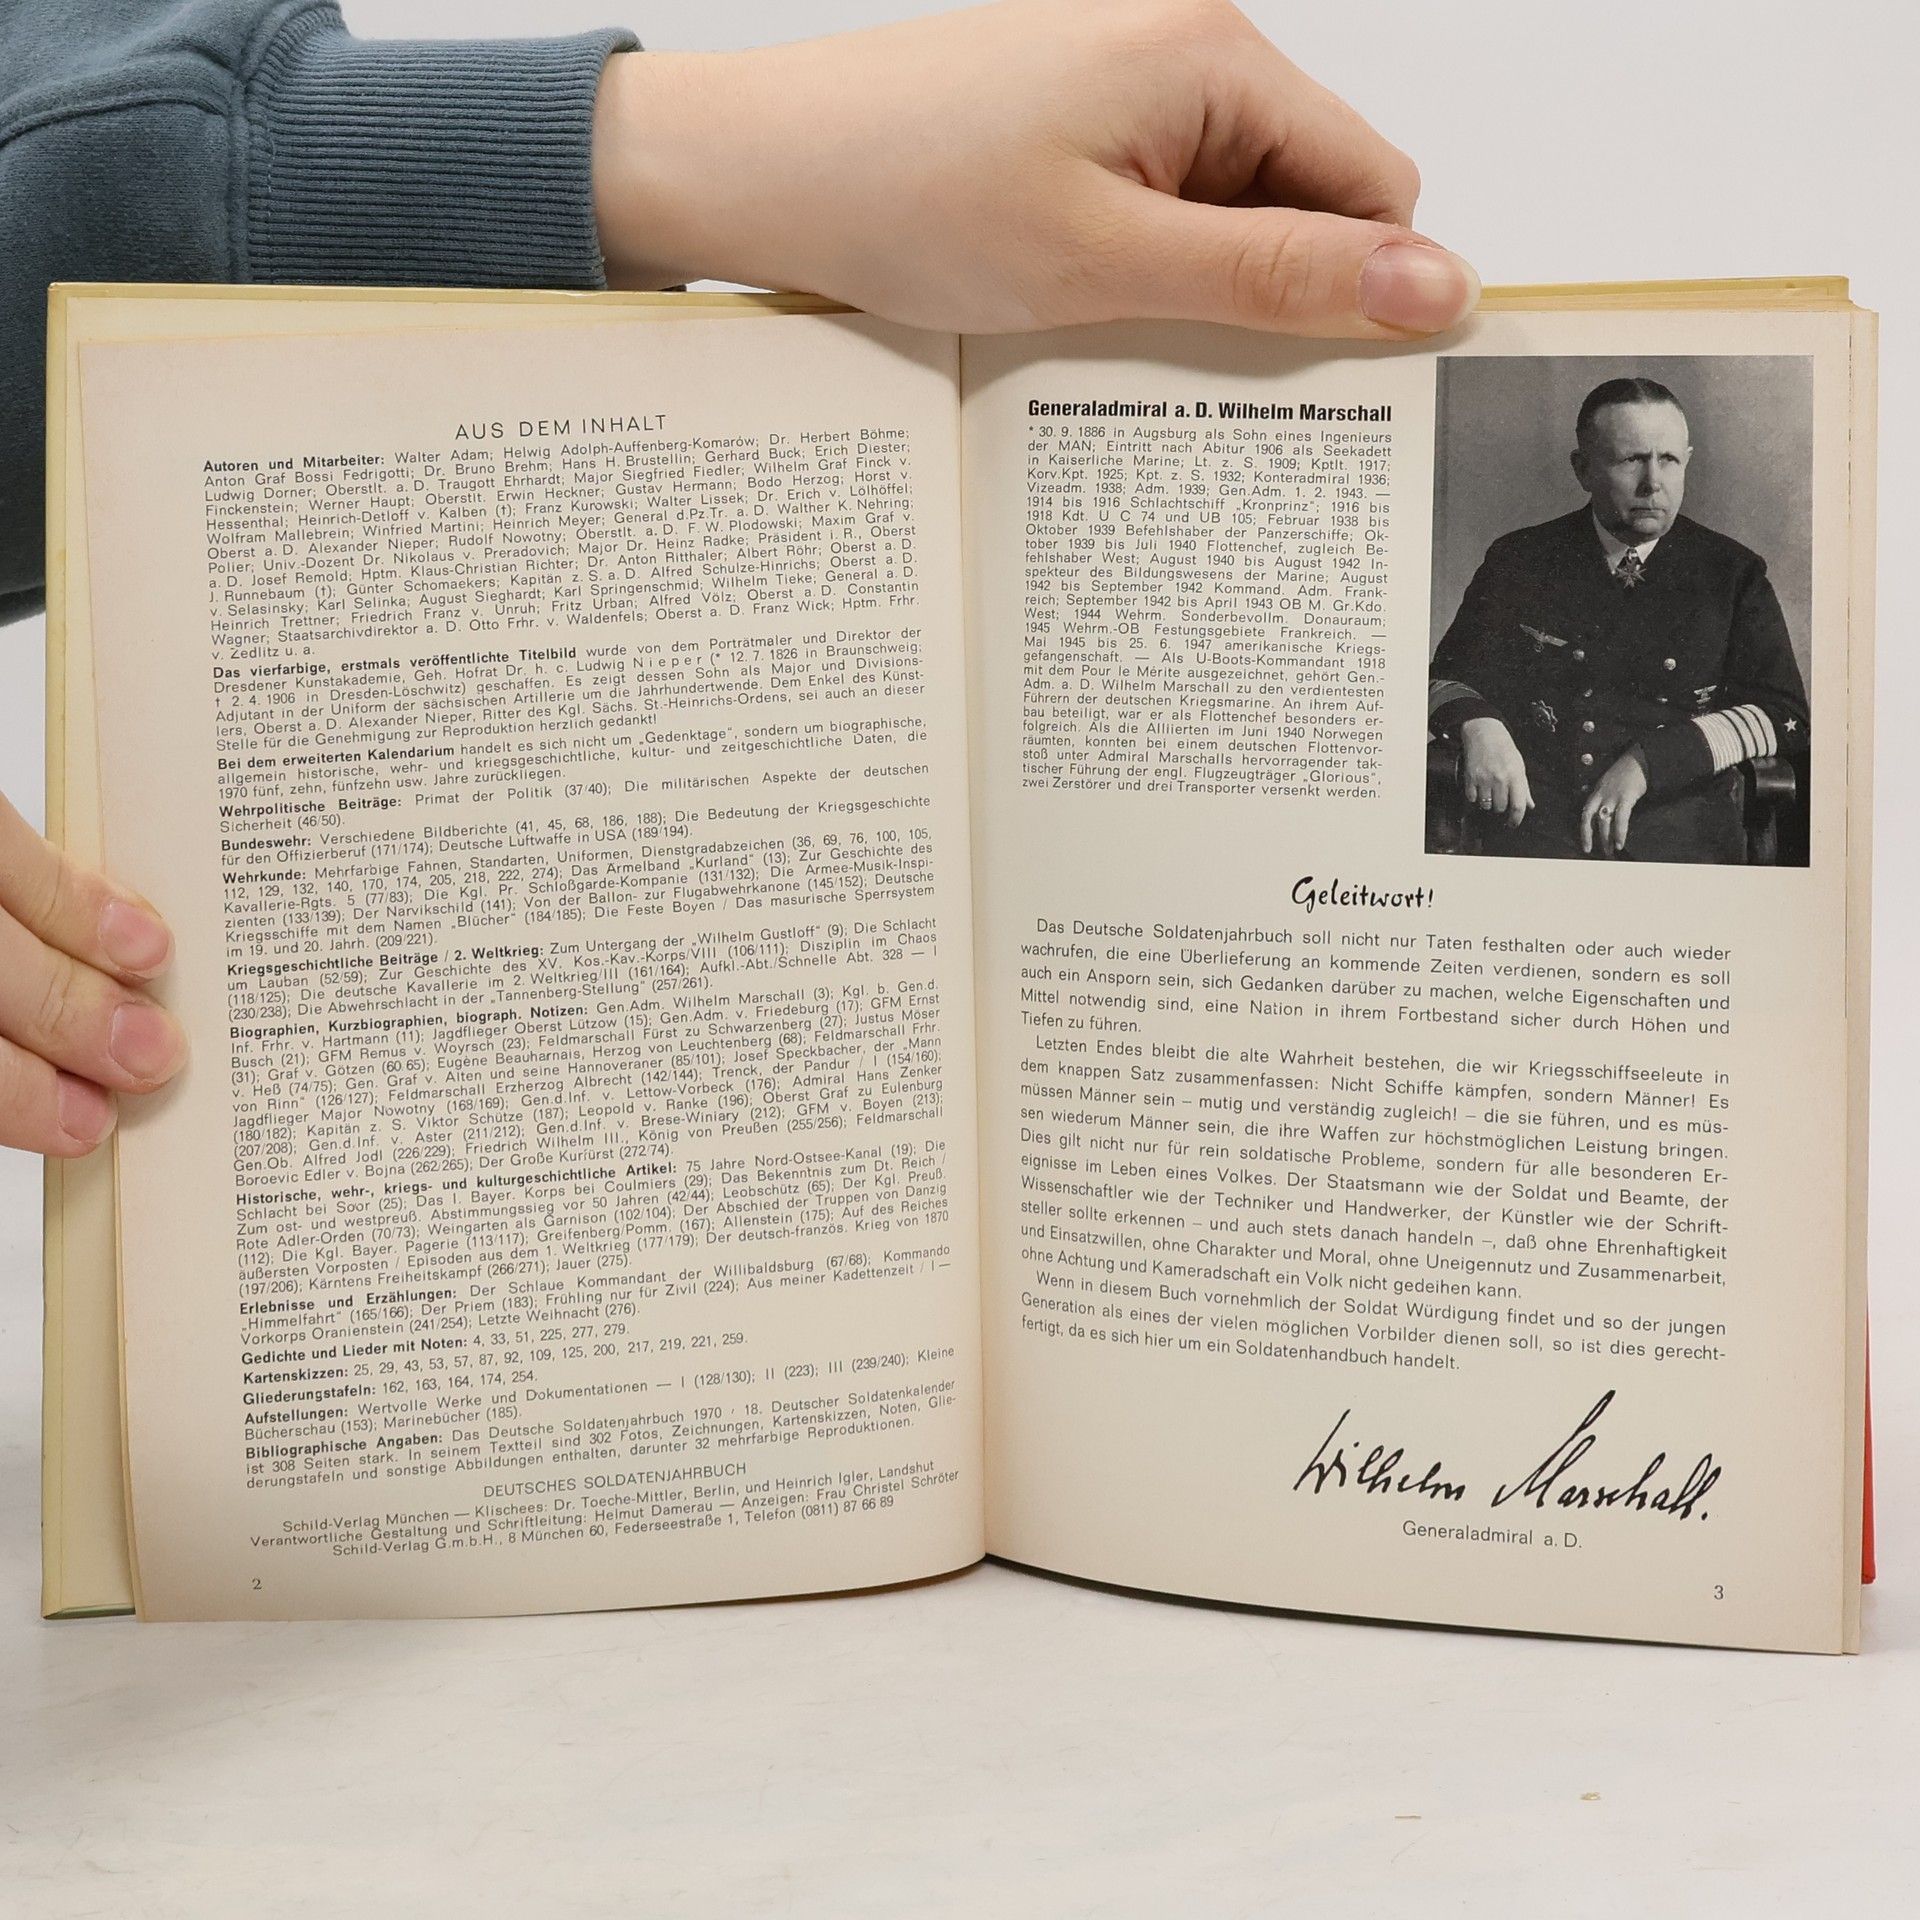 AUS DEM INHALT
Autoren und Mitarbeiter: Walter Adam; Helwig Adolph-Auffenberg-Komarów; Dr. Herbert Böhme;
Anton Graf Bossi Fedrigotti; Dr. Bruno Brehm; Hans H. Brustellin; Gerhard Buck; Erich Diester;
Ludwig Dorner; Oberstlt. a. D. Traugott Ehrhardt; Major Siegfried Fiedler; Wilhelm Graf Finck v.
Finckenstein; Werner Haupt; Oberstlt. Erwin Heckner; Gustav Hermann; Bodo Herzog; Horst v.
Hessenthal; Heinrich-Detloff v. Kalben (†); Franz Kurowski; Walter Lissek; Dr. Erich v. Lölhöffel;
Wolfram Mallebrein; Winfried Martini; Heinrich Meyer; General d.Pz.Tr. a. D. Walther K. Nehring;
Oberst a. D. Alexander Nieper; Rudolf Nowotny; Oberstlt. a. D. F. W. Plodowski; Maxim Graf v.
Polier; Univ.-Dozent Dr. Nikolaus v. Preradovich; Major Dr. Heinz Radke; Präsident i. R., Oberst
a. D. Josef Remold; Hptm. Klaus-Christian Richter; Dr. Anton Ritthaler; Albert Röhr; Oberst a. D.
J. Runnebaum (†); Günter Schomaekers; Kapitän z. S. a. D. Alfred Schulze-Hinrichs; Oberst a. D.
v. Selasinsky; Karl Selinka; August Sieghardt; Karl Springenschmid; Wilhelm Tieke; General a. D.
Heinrich Trettner; Friedrich Franz v. Unruh; Fritz Urban; Alfred Völz; Oberst a. D. Constantin
Wagner; Staatsarchivdirektor a. D. Otto Frhr. v. Waldenfels; Oberst a. D. Franz Wick; Hptm. Frhr.
v. Zedlitz u. a.
Das vierfarbige, erstmals veröffentlichte Titelbild wurde von dem Porträtmaler und Direktor der
Dresdener Kunstakademie, Geh. Hofrat Dr. h. c. Ludwig Nieper (* 12. 7. 1826 in Braunschweig;
† 2. 4. 1906 in Dresden-Löschwitz) geschaffen. Es zeigt dessen Sohn als Major und Divisions-
Adjutant in der Uniform der sächsischen Artillerie um die Jahrhundertwende. Dem Enkel des Künst-
lers, Oberst a. D. Alexander Nieper, Ritter des Kgl. Sächs. St.-Heinrichs-Ordens, sei auch an dieser
Stelle für die Genehmigung zur Reproduktion herzlich gedankt!
Bei dem erweiterten Kalendarium handelt es sich nicht um „Gedenktage“, sondern um biographische,
allgemein historische, wehr- und kriegsgeschichtliche, kultur- und zeitgeschichtliche Daten, die
1970 fünf, zehn, fünfzehn usw. Jahre zurückliegen.
Wehrpolitische Beiträge: Primat der Politik (37/40); Die militärischen Aspekte der deutschen
Sicherheit (46/50).
Bundeswehr: Verschiedene Bildberichte (41, 45, 68, 186, 188); Die Bedeutung der Kriegsgeschichte
für den Offizierberuf (171/174); Deutsche Luftwaffe in USA (189/194).
Wehrkunde: Mehrfarbige Fahnen, Standarten, Uniformen, Dienstgradabzeichen (36, 69, 76, 100, 105,
112, 129, 132, 140, 170, 174, 205, 218, 222, 274); Das Ärmelband „Kurland“ (13); Zur Geschichte des
Kavallerie-Rgts. 5 (77/83); Die Kgl. Pr. Schloßgarde-Kompanie (131/132); Die Armee-Musik-Inspi-
zienten (133/139); Der Narvikschild (141); Von der Ballon- zur Flugabwehrkanone (145/152); Deutsche
Kriegsschiffe mit dem Namen „Blücher“ (184/185); Die Feste Boyen / Das masurische Sperrsystem
im 19. und 20. Jahrh. (209/221).
Kriegsgeschichtliche Beiträge / 2. Weltkrieg: Zum Untergang der „Wilhelm Gustloff“ (9); Die Schlacht
um Lauban (52/59); Zur Geschichte des XV. Kos.-Kav.-Korps/VIII (106/111); Disziplin im Chaos
(118/125); Die deutsche Kavallerie im 2. Weltkrieg/III (161/164); Aufkl.-Abt./Schnelle Abt. 328 — I
(230/238); Die Abwehrschlacht in der „Tannenberg-Stellung“ (257/261).
Biographien, Kurzbiographien, biograph. Notizen: Gen.Adm. Wilhelm Marschall (3); Kgl. b. Gen.d.
Inf. Frhr. v. Hartmann (11); Jagdflieger Oberst Lützow (15); Gen.Adm. v. Friedeburg (17); GFM Ernst
Busch (21); GFM Remus v. Woyrsch (23); Feldmarschall Fürst zu Schwarzenberg (27); Justus Möser
(31); Graf v. Götzen (60 65); Eugène Beauharnais, Herzog von Leuchtenberg (68); Feldmarschall Frhr.
v. Heß (74/75); Gen. Graf v. Alten und seine Hannoveraner (85/101); Josef Speckbacher, der „Mann
von Rinn“ (126/127); Feldmarschall Erzherzog Albrecht (142/144); Trenck, der Pandur / I (154/160);
Jagdflieger Major Nowotny (168/169); Gen.d.Inf. v. Lettow-Vorbeck (176); Admiral Hans Zenker
(180/182); Kapitän z. S. Viktor Schütze (187); Leopold v. Ranke (196); Oberst Graf zu Eulenburg
(207/208); Gen.d.Inf. v. Aster (211/212); Gen.d.Inf. v. Brese-Winiary (212); GFM v. Boyen (213);
Gen.Ob. Alfred Jodl (226/229); Friedrich Wilhelm III., König von Preußen (255/256); Feldmarschall
Boroevic Edler v. Bojna (262/265); Der Große Kurfürst (272/74).
Historische, wehr-, kriegs- und kulturgeschichtliche Artikel: 75 Jahre Nord-Ostsee-Kanal (19); Die
Schlacht bei Soor (25); Das I. Bayer. Korps bei Coulmiers (29); Das Bekenntnis zum Dt. Reich /
Zum ost- und westpreuß. Abstimmungssieg vor 50 Jahren (42/44); Leobschütz (65); Der Kgl. Preuß.
Rote Adler-Orden (70/73); Weingarten als Garnison (102/104); Der Abschied der Truppen von Danzig
(112); Die Kgl. Bayer. Pagerie (113/117); Greifenberg/Pomm. (167); Allenstein (175); Auf des Reiches
äußersten Vorposten / Episoden aus dem 1. Weltkrieg (177/179); Der deutsch-französ. Krieg von 1870
(197/206); Kärntens Freiheitskampf (266/271); Jauer (275).
Erlebnisse und Erzählungen: Der Schlaue Kommandant der Willibaldsburg (67/68); Kommando
„Himmelfahrt“ (165/166); Der Priem (183); Frühling nur für Zivil (224); Aus meiner Kadettenzeit / I —
Vorkorps Oranienstein (241/254); Letzte Weihnacht (276).
Gedichte und Lieder mit Noten: 4, 33, 51, 225, 277, 279.
Kartenskizzen: 25, 29, 43, 53, 57, 87, 92, 109, 125, 200, 217, 219, 221, 259.
Gliederungstafeln: 162, 163, 164, 174, 254.
Aufstellungen: Wertvolle Werke und Dokumentationen — I (128/130); II (223); III (239/240); Kleine
Bücherschau (153); Marinebücher (185).
Bibliographische Angaben: Das Deutsche Soldatenjahrbuch 1970 / 18. Deutscher Soldatenkalender
ist 308 Seiten stark. In seinem Textteil sind 302 Fotos, Zeichnungen, Kartenskizzen, Noten, Glie-
derungstafeln und sonstige Abbildungen enthalten, darunter 32 mehrfarbige Reproduktionen.
DEUTSCHES SOLDATENJAHRBUCH
Schild-Verlag München — Klischees: Dr. Toeche-Mittler, Berlin, und Heinrich Igler, Landshut
Verantwortliche Gestaltung und Schriftleitung: Helmut Damerau — Anzeigen: Frau Christel Schröter
Schild-Verlag G.m.b.H., 8 München 60, Federseestraße 1, Telefon (0811) 87 66 89
2
Generaladmiral a. D. Wilhelm Marschall
* 30. 9. 1886 in Augsburg als Sohn eines Ingenieurs
der MAN; Eintritt nach Abitur 1906 als Seekadett
in Kaiserliche Marine; Lt. z. S. 1909; Kptlt. 1917;
Korv.Kpt. 1925; Kpt. z. S. 1932; Konteradmiral 1936;
Vizeadm. 1938; Adm. 1939; Gen.Adm. 1. 2. 1943. —
1914 bis 1916 Schlachtschiff „Kronprinz“; 1916 bis
1918 Kdt. U C 74 und UB 105; Februar 1938 bis
Oktober 1939 Befehlshaber der Panzerschiffe; Ok-
tober 1939 bis Juli 1940 Flottenchef, zugleich Be-
fehlshaber West; August 1940 bis August 1942 In-
spekteur des Bildungswesens der Marine; August
1942 bis September 1942 Kommand. Adm. Frank-
reich; September 1942 bis April 1943 OB M. Gr.Kdo.
West; 1944 Wehrm. Sonderbevollm. Donauraum;
1945 Wehrm.-OB Festungsgebiete Frankreich. —
Mai 1945 bis 25. 6. 1947 amerikanische Kriegs-
gefangenschaft. — Als U-Boots-Kommandant 1918
mit dem Pour le Mérite ausgezeichnet, gehört Gen.-
Adm. a. D. Wilhelm Marschall zu den verdientesten
Führern der deutschen Kriegsmarine. An ihrem Auf-
bau beteiligt, war er als Flottenchef besonders er-
folgreich. Als die Alliierten im Juni 1940 Norwegen
räumten, konnten bei einem deutschen Flottenvor-
stoß unter Admiral Marschalls hervorragender tak-
tischer Führung der engl. Flugzeugträger „Glorious“,
zwei Zerstörer und drei Transporter versenkt werden.
Geleitwort!
Das Deutsche Soldatenjahrbuch soll nicht nur Taten festhalten oder auch wieder
wachrufen, die eine Überlieferung an kommende Zeiten verdienen, sondern es soll
auch ein Ansporn sein, sich Gedanken darüber zu machen, welche Eigenschaften und
Mittel notwendig sind, eine Nation in ihrem Fortbestand sicher durch Höhen und
Tiefen zu führen.
Letzten Endes bleibt die alte Wahrheit bestehen, die wir Kriegsschiffseeleute in
dem knappen Satz zusammenfassen: Nicht Schiffe kämpfen, sondern Männer! Es
müssen Männer sein – mutig und verständig zugleich! – die sie führen, und es müs-
sen wiederum Männer sein, die ihre Waffen zur höchstmöglichen Leistung bringen.
Dies gilt nicht nur für rein soldatische Probleme, sondern für alle besonderen Er-
eignisse im Leben eines Volkes. Der Staatsmann wie der Soldat und Beamte, der
Wissenschaftler wie der Techniker und Handwerker, der Künstler wie der Schrift-
steller sollte erkennen – und auch stets danach handeln –, daß ohne Ehrenhaftigkeit
und Einsatzwillen, ohne Charakter und Moral, ohne Uneigennutz und Zusammenarbeit,
ohne Achtung und Kameradschaft ein Volk nicht gedeihen kann.
Wenn in diesem Buch vornehmlich der Soldat Würdigung findet und so der jungen
Generation als eines der vielen möglichen Vorbilder dienen soll, so ist dies gerecht-
fertigt, da es sich hier um ein Soldatenhandbuch handelt.
Wilhelm Marschall.
Generaladmiral a. D.
3